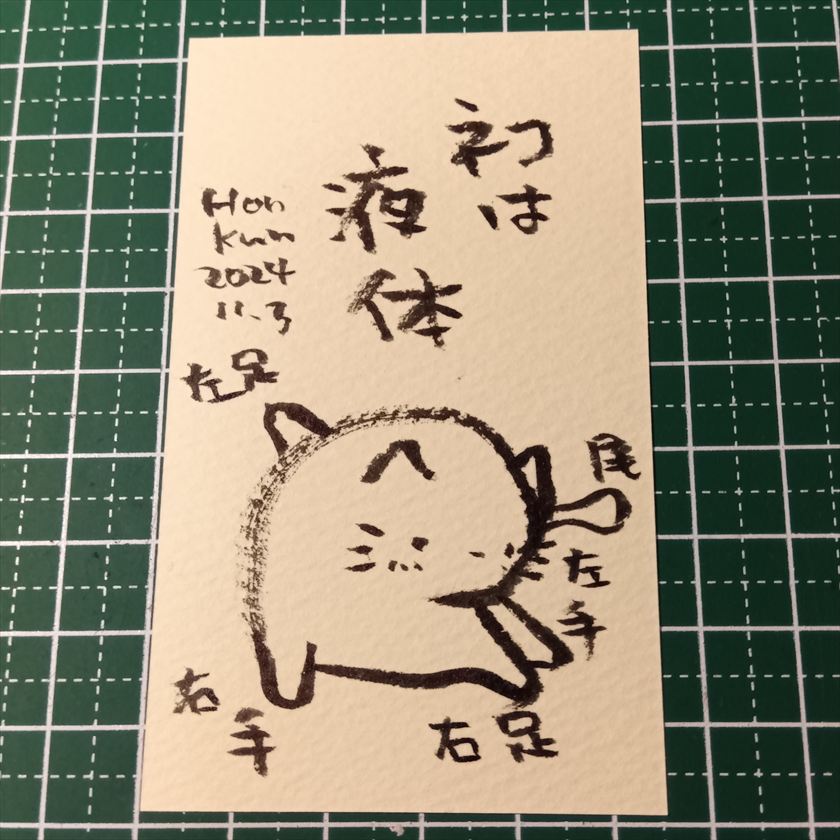 初は
液体
Hon
Kun
2024
11.3
左足
尾
左手
右手
右足